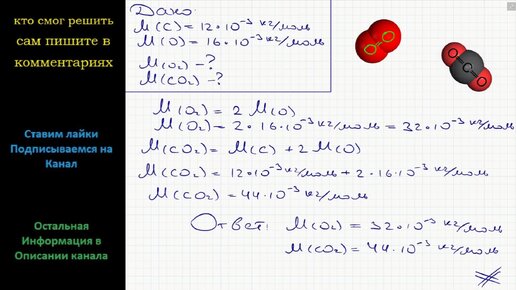 кто смог решить
сам пишите в
комментариях
Ставим лайки
Подписываемся на
Канал
Остальная
Информация в
Описании канала
Дано:
M(C) = 12·10⁻³ кг/моль
M(O) = 16·10⁻³ кг/моль
M(O₂) – ?
M(CO₂) – ?
O
O
O
C
O
M(O₂) = 2 M(O)
M(O₂) = 2·16·10⁻³ кг/моль = 32·10⁻³ кг/моль
M(CO₂) = M(C) + 2 M(O)
M(CO₂) = 12·10⁻³ кг/моль + 2·16·10⁻³ кг/моль
M(CO₂) = 44·10⁻³ кг/моль
Ответ: M(O₂) = 32·10⁻³ кг/моль
M(CO₂) = 44·10⁻³ кг/моль